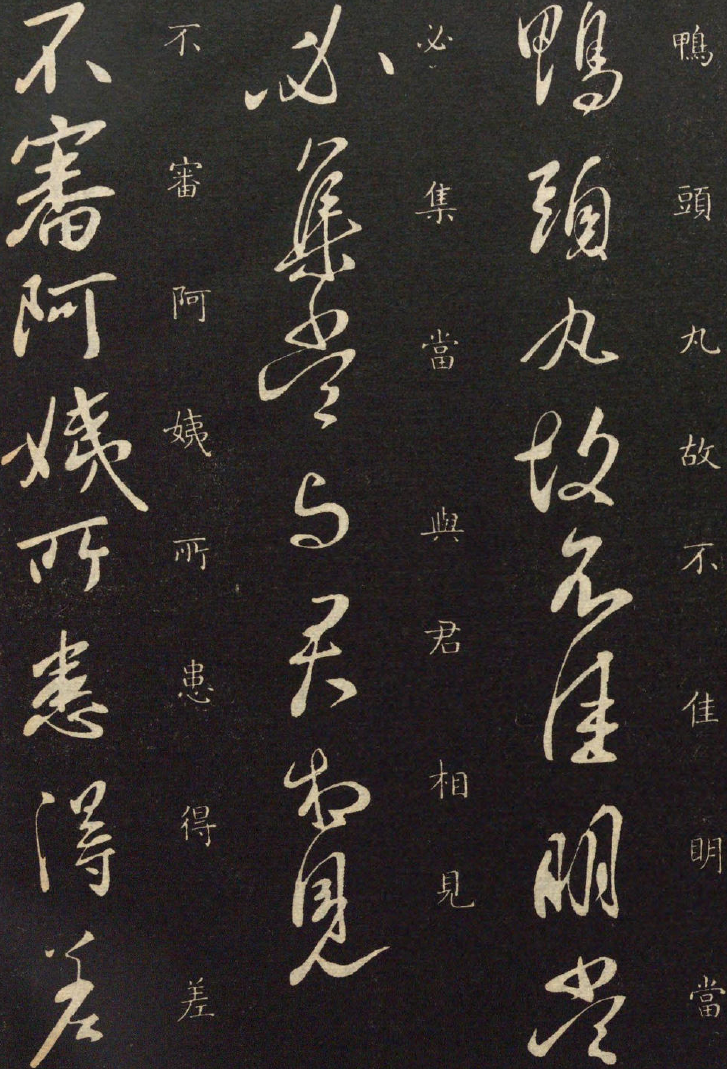 鴨頭丸故不佳明當
鴨頭丸故不佳明當
必集當與君相見
必集當與君相見
不審阿姨所患得差
不審阿姨所患得差